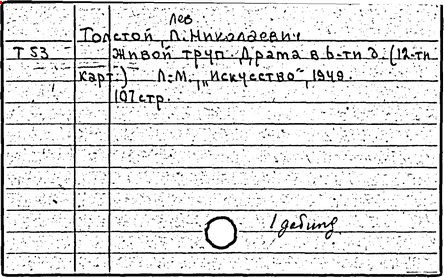 Лев
Толстой, Л. Николаевич
Т53 Живой труп. Драма в 6-ти д. (12-ти
карт.) Л.-М., „Искусство", 1949.
107 стр.
1